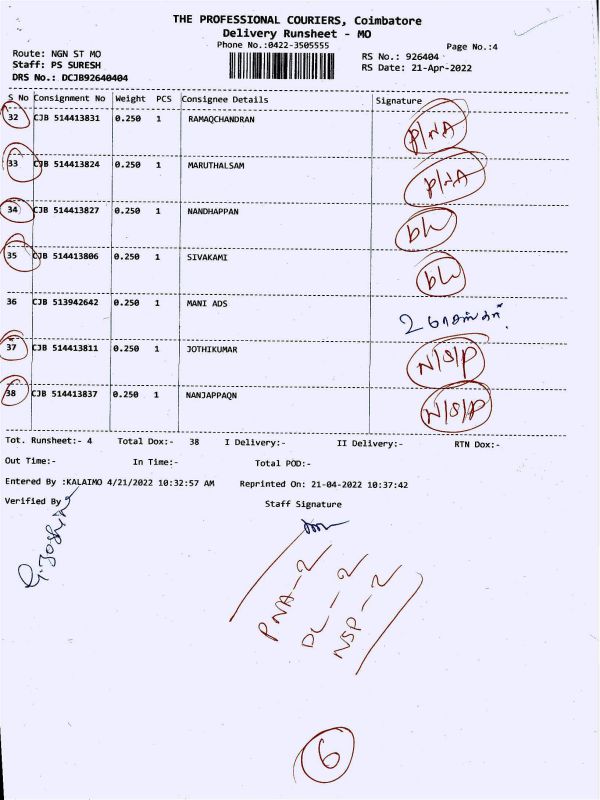 THE PROFESSIONAL COURIERS, Coimbatore
Delivery Runsheet - MO
Phone No.:0422-3505555
Page No.:4
Route: NGN ST MO
RS No.: 926404
Staff: PS SURESH
RS Date: 21-Apr-2022
DRS No.: DCJB92640404
S No Consignment No Weight PCS Consignee Details Signature
32 CJB 514413831 0.250 1 RAMAQCHANDRAN P/NA
33 CJB 514413824 0.250 1 MARUTHALSAM P/NA
34 CJB 514413827 0.250 1 NANDHAPPAN
35 CJB 514413806 0.250 1 SIVAKAMI
36 CJB 513942642 0.250 1 MANI ADS
37 CJB 514413811 0.250 1 JOTHIKUMAR N/S/P
38 CJB 514413837 0.250 1 NANJAPPAQN N/S/P
Tot. Runsheet:- 4 Total Dox:- 38 I Delivery:- II Delivery:- RTN Dox:-
Out Time:- In Time:- Total POD:-
Entered By :KALAIMO 4/21/2022 10:32:57 AM Reprinted On: 21-04-2022 10:37:42
Verified By Staff Signature
PNA-2
DL-2
NSP-2
6